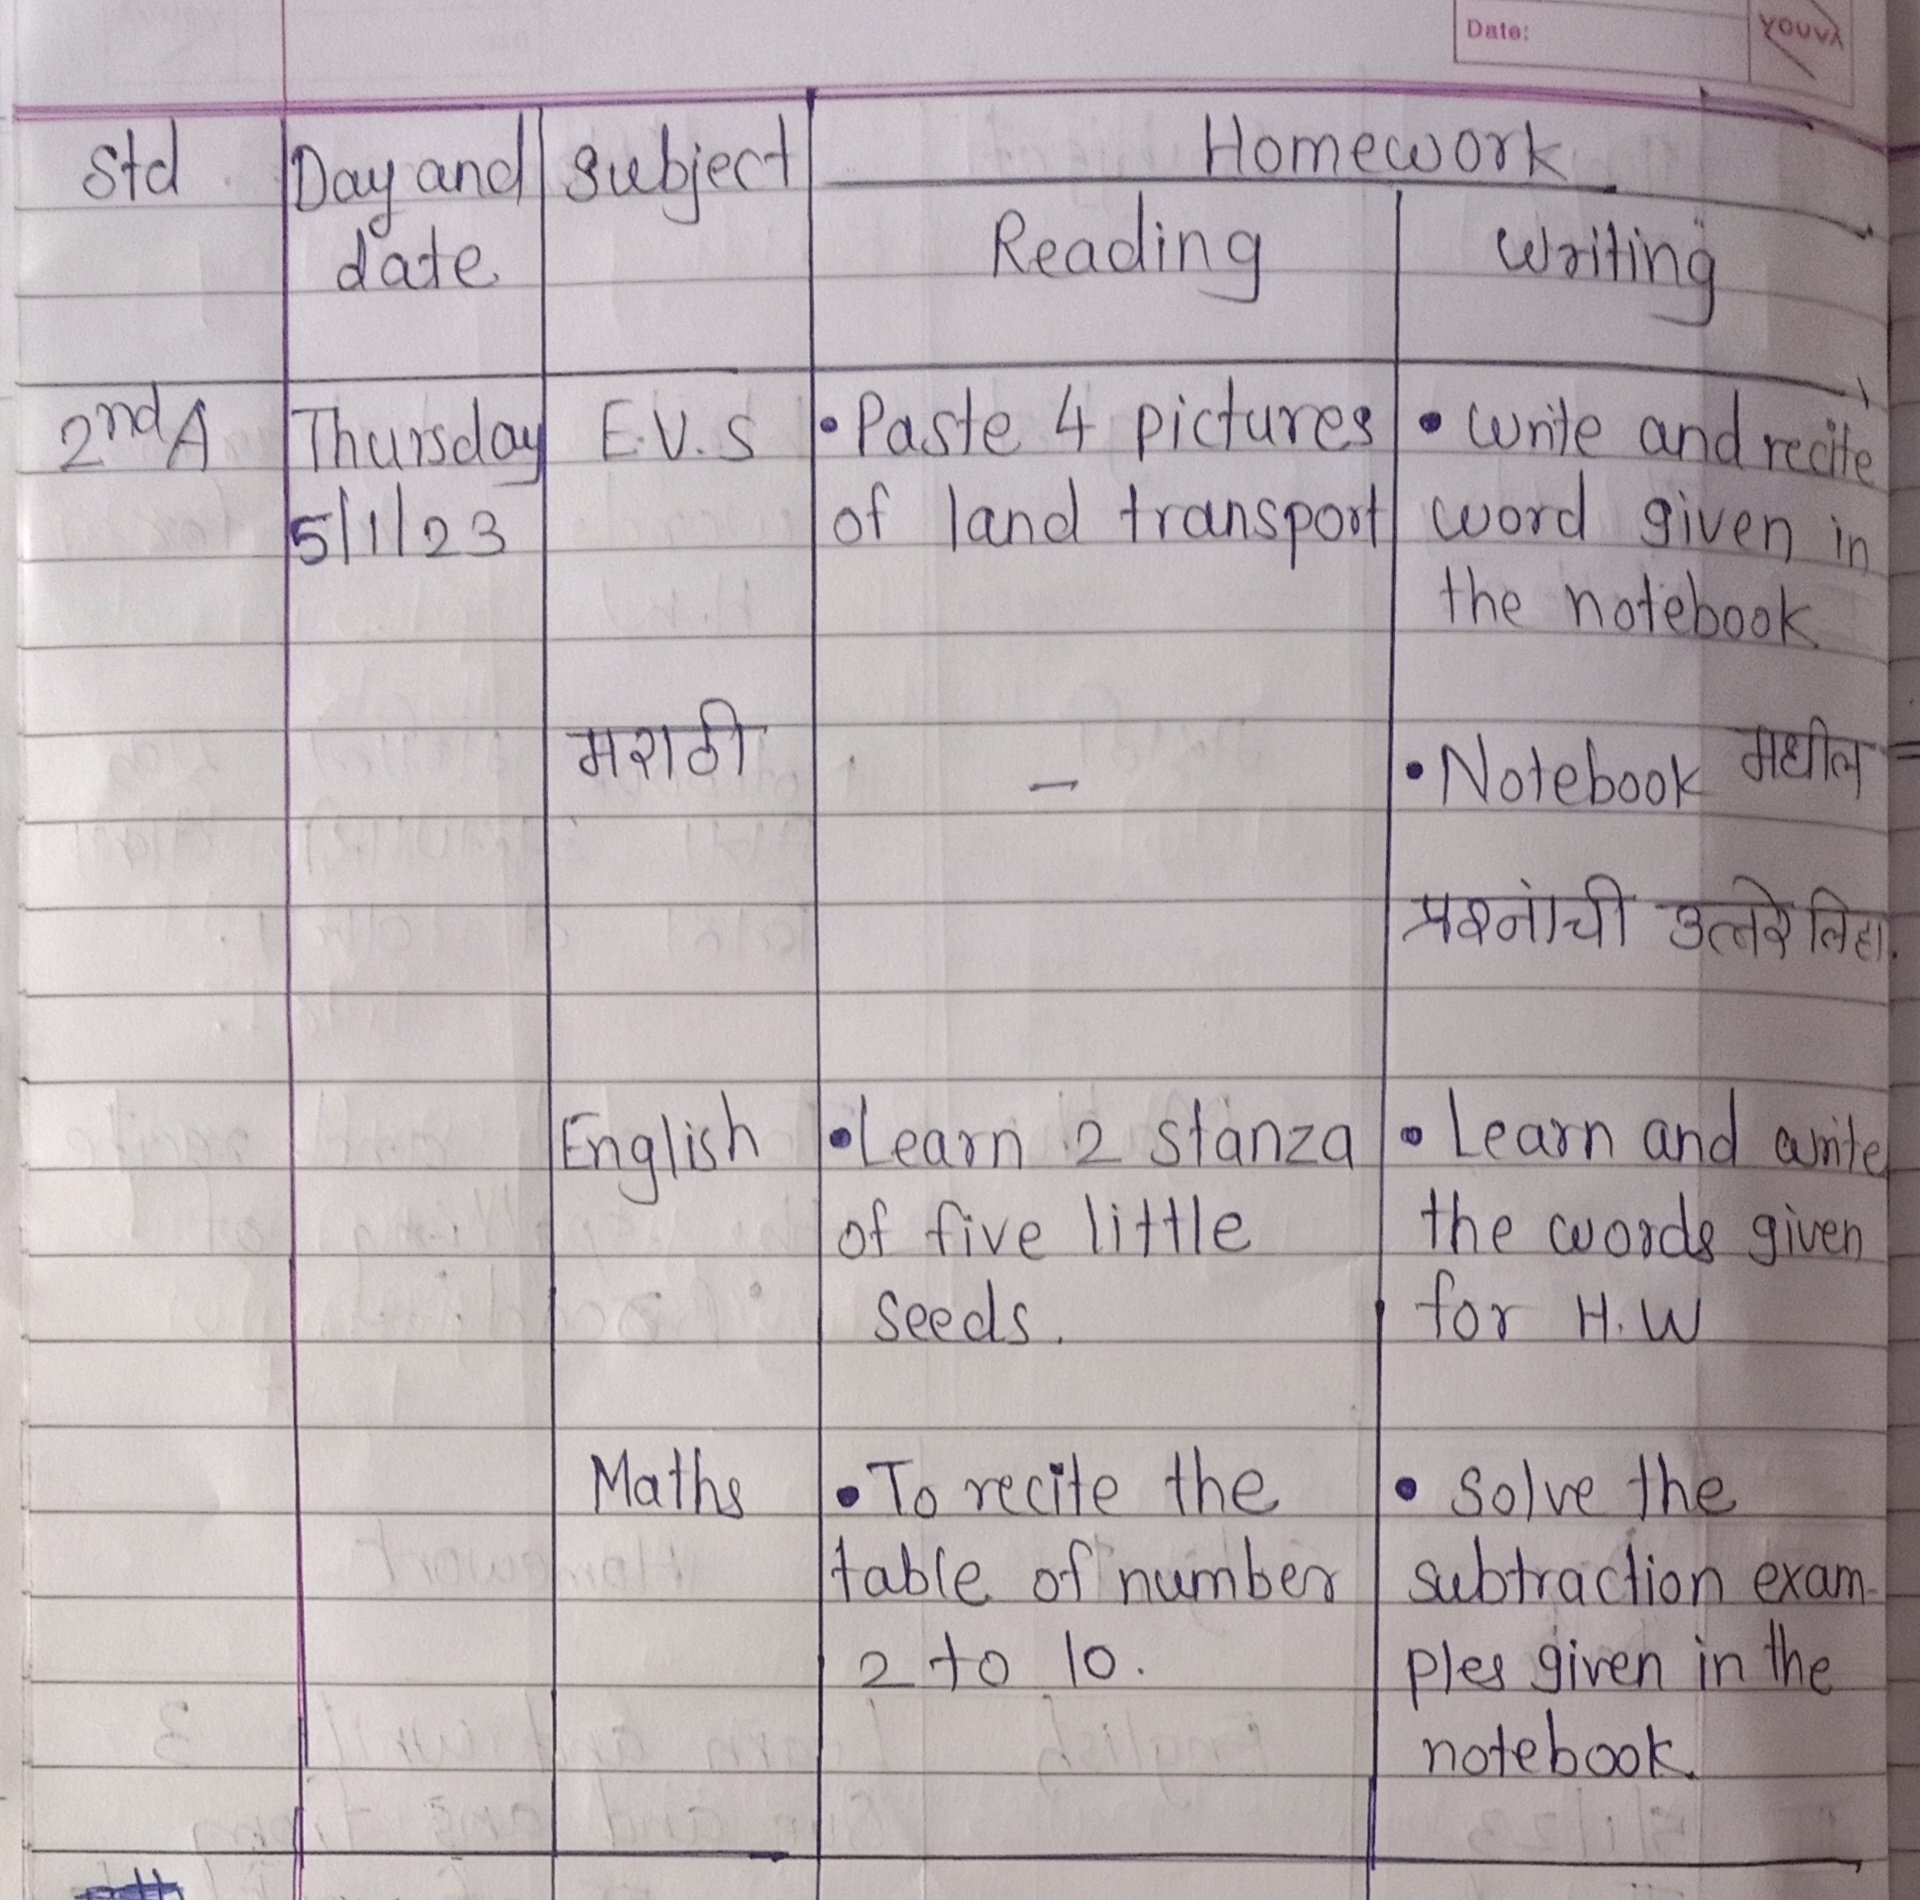 Date:
YOUVA
Std Day and Subject Homework
date Reading Writing
2nd A Thursday E.V.S • Paste 4 pictures • Write and recite
5/1/23 of land transport word given in
the notebook
मराठी – • Notebook मधील
प्रश्नांची उत्तरे लिहा.
English • Learn 2 stanza • Learn and write
of five little the words given
seeds. for H.W
Maths • To recite the • Solve the
table of number subtraction exam-
2 to 10. ples given in the
notebook.